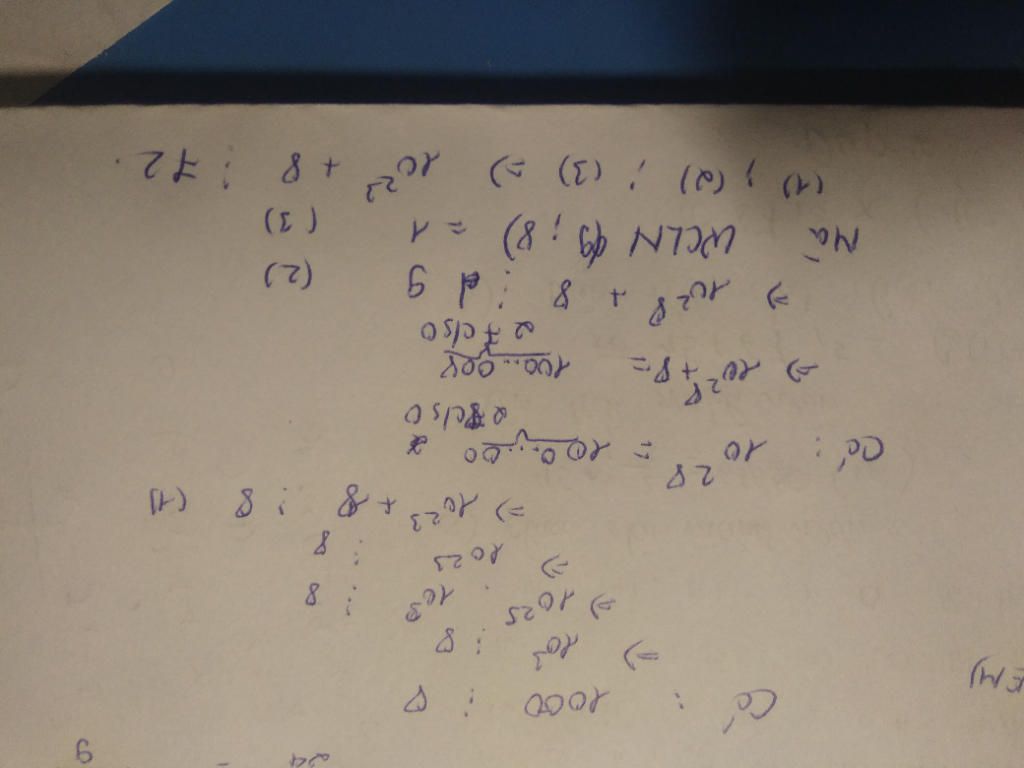 9
EM)
Có : 1000 ⋮ 8
=> 10³ ⋮ 8
=> 10²⁵ . 10³ ⋮ 8
=> 10²³ ⋮ 8
=> 10²³ + 8 ⋮ 8 (1)
Có : 10²⁸ = 100...00
28 c/s 0
=> 10²⁸ + 8 = 100...008
27 c/s 0
=> 10²⁸ + 8 ⋮ 9 (2)
Mà ƯCLN (9 ; 8) = 1 (3)
(1) ; (2) ; (3) => 10²³ + 8 ⋮ 72.